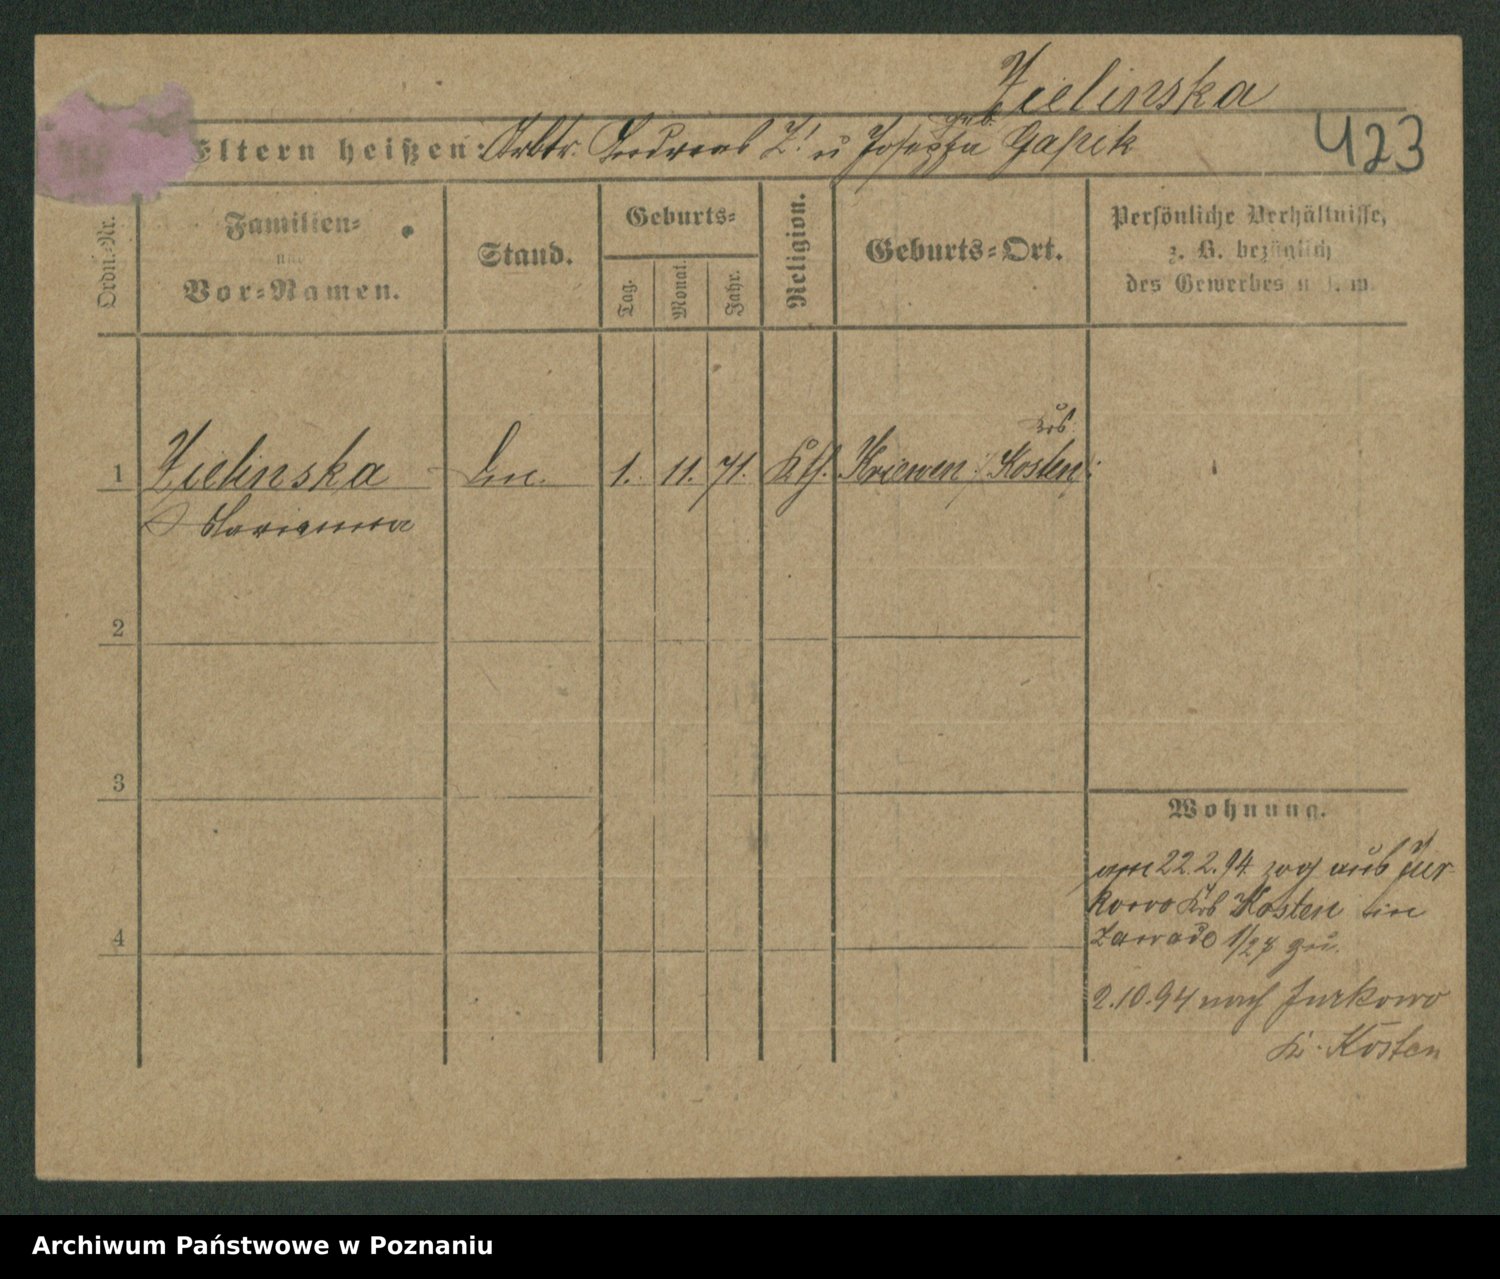 Zielinska
423
geb.
Eltern heißen: Arbtr. Andreas Z. u Josepha Gapek
Ordn.-Nr.
Familien-
und
Vor-Namen.
Stand.
Geburts-
Tag.
Monat.
Jahr.
Religion.
Geburts-Ort.
Persönliche Verhältnisse,
z. B. bezüglich
des Gewerbes u. s. w.
Krs.
1 Zielinska 1. 11. 71. Kth. Kriewen Kosten
Marianna
2
3
4
Wohnung.
am 22.2.94 zog aus Jur
kowo Krs Kosten in
Zawade 1/27 zu.
2.10.94 nach Jurkowo
K. Kosten
Archiwum Państwowe w Poznaniu